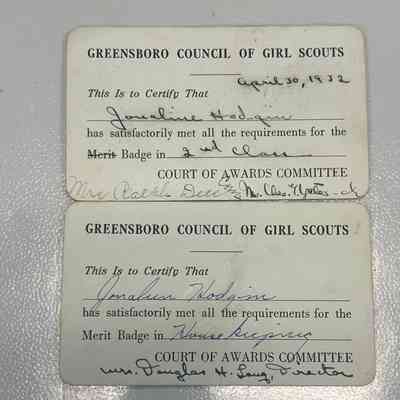 GREENSBORO COUNCIL OF GIRL SCOUTS
April 30, 1932
This Is to Certify That
Hodgin
has satisfactorily met all the requirements for the
Merit Badge in 2nd Class
COURT OF AWARDS COMMITTEE
Mrs Ralph
GREENSBORO COUNCIL OF GIRL SCOUTS
This Is to Certify That
Hodgin
has satisfactorily met all the requirements for the
Merit Badge in Housekeeping
COURT OF AWARDS COMMITTEE
Mrs. Douglas H. Long, Director